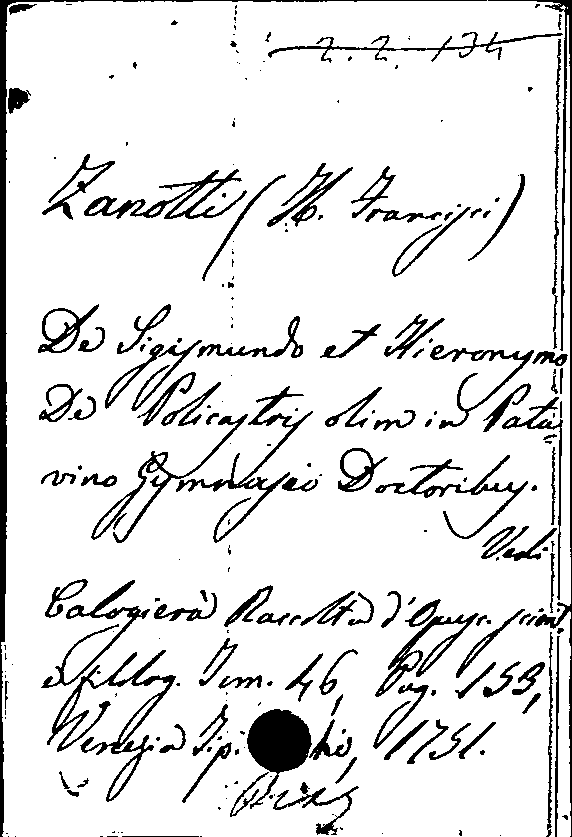 2. 2. 134
Zanotti (H. Francisci)
De Sigismundo et Hieronymo
De Policastris olim in Pata
vino Gymnasio Doctoribus.
Vedi
Calogierà Raccolta d'Opusc. scient.
e filolog. Tom. 46, Pag. 153,
Venezia 1751.